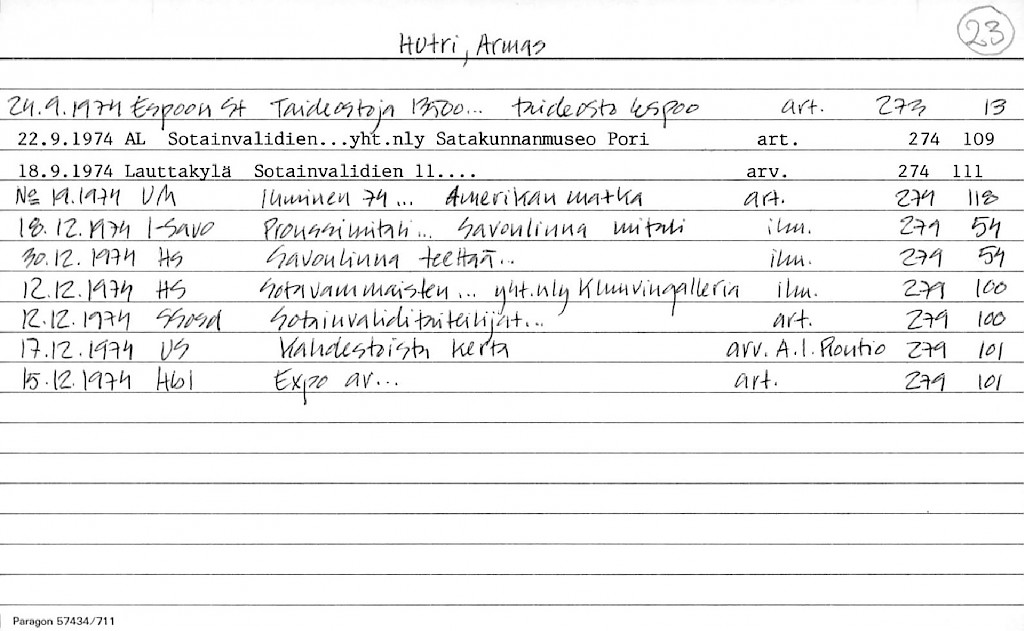 Hutri, Armas
23
24.9.1974 Espoon St Taideostoja 13500... taideosto Espoo art. 273 13
22.9.1974 AL Sotainvalidien...yht.nly Satakunnanmuseo Pori art. 274 109
18.9.1974 Lauttakylä Sotainvalidien 11.... arv. 274 111
No 19.1974 V/M Ihminen 74... Amerikan matka art. 279 118
18.12.1974 I-Savo Pronssimitali... Savonlinna mitali ilm. 279 54
30.12.1974 HS Savonlinna teettää.. ilm. 279 54
12.12.1974 HS Sotavammaisten... yht.nly Kluuvingalleria ilm. 279 100
12.12.1974 SSosd Sotainvaliditaiteilijat... art. 279 100
17.12.1974 US Kahdestoista kerta arv. A.I. Routio 279 101
15.12.1974 Hbl Expo av... art. 279 101
Paragon 57434/711